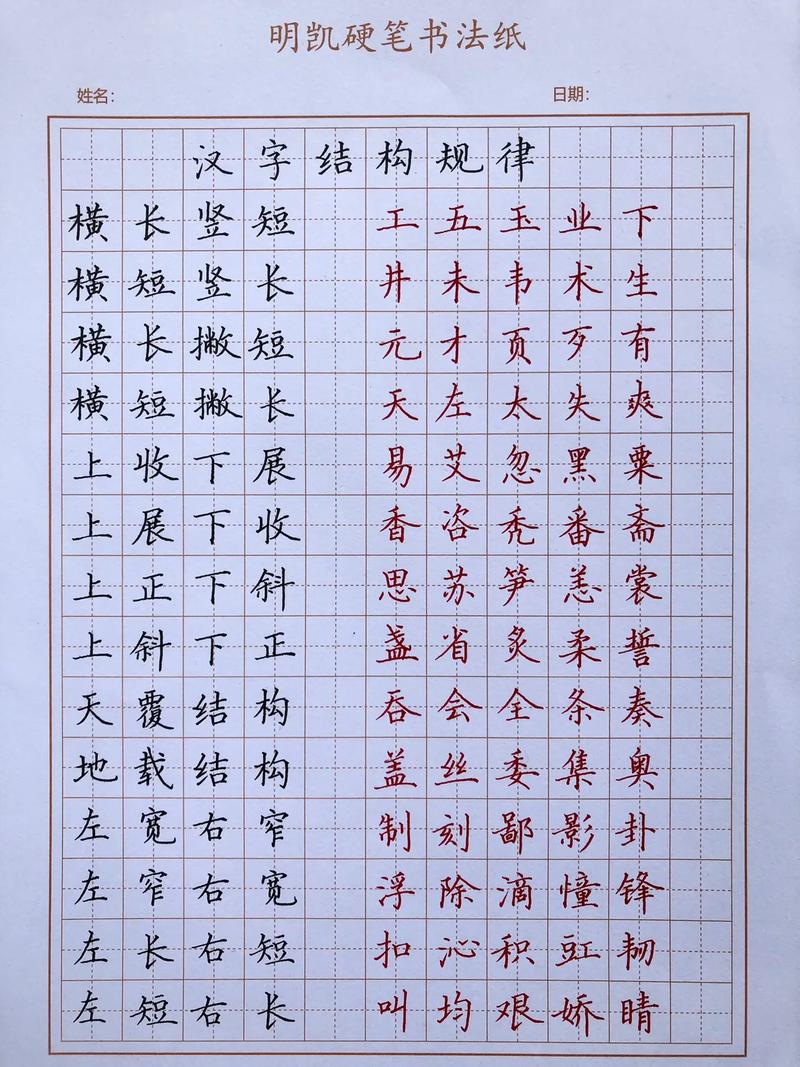 明凯硬笔书法纸
姓名: 日期:
汉字结构规律
横长竖短 工五玉业下
横短竖长 井未韦术生
横长撇短 元才页歹有
横短撇长 天左太失爽
上收下展 易艾忽黑粟
上展下收 香咨秃番斋
上正下斜 思苏笋恙裳
上斜下正 盏省炙柔誓
天覆结构 吞会全条奏
地载结构 盖丝委集奥
左宽右窄 制刻鄙影卦
左窄右宽 浮除滴憧锋
左长右短 扣沁积豇韧
左短右长 叫均艰娇睛